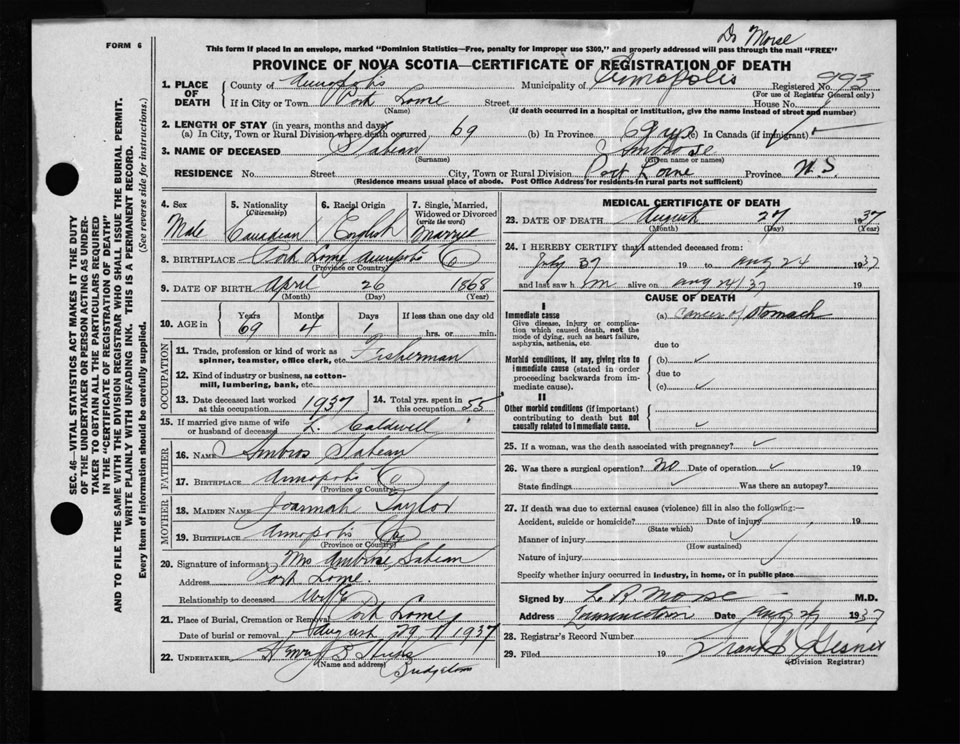 Dr Morse
FORM 6
This form if placed in an envelope, marked "Dominion Statistics—Free, penalty for improper use $300," and properly addressed will pass through the mail "FREE"
PROVINCE OF NOVA SCOTIA—CERTIFICATE OF REGISTRATION OF DEATH
1. PLACE OF DEATH
County of Annapolis Municipality of Annapolis Registered No. 993
(For use of Registrar General only)
If in City or Town Port Lorne Street House No.
(Name) (If death occurred in a hospital or institution, give the name instead of street and number)
2. LENGTH OF STAY (in years, months and days)
(a) In City, Town or Rural Division where death occurred 69 (b) In Province 69 yrs (c) In Canada (if immigrant)
3. NAME OF DECEASED Sabean Ambrose
(Surname) (Given name or names)
RESIDENCE No. Street City, Town or Rural Division Port Lorne Province N.S.
(Residence means usual place of abode. Post Office Address for residents in rural parts not sufficient)
4. Sex Male
5. Nationality (Citizenship) Canadian
6. Racial Origin English
7. Single, Married, Widowed or Divorced (write the word)
8. BIRTHPLACE Port Lorne Annapolis Co
(Province or Country)
9. DATE OF BIRTH April 26 1868
(Month) (Day) (Year)
10. AGE in Years 69 Months 4 Days 1 If less than one day old hrs. or min.
OCCUPATION
11. Trade, profession or kind of work as spinner, teamster, office clerk, etc. Fisherman
12. Kind of industry or business, as cotton-mill, lumbering, bank, etc.
13. Date deceased last worked at this occupation 1937
14. Total yrs. spent in this occupation 55
15. If married give name of wife or husband of deceased L. Caldwell
FATHER
16. NAME Ambros Sabean
17. BIRTHPLACE Annapolis Co
(Province or Country)
MOTHER
18. MAIDEN NAME Joannah Taylor
19. BIRTHPLACE Annapolis Co
(Province or Country)
20. Signature of informant Mrs Ambrose Sabean
Address Port Lorne.
Relationship to deceased Wife
21. Place of Burial, Cremation or Removal Port Lorne
Date of burial or removal August 29 1937
22. UNDERTAKER
(Name and address)
MEDICAL CERTIFICATE OF DEATH
23. DATE OF DEATH August 27 1937
(Month) (Day) (Year)
24. I HEREBY CERTIFY that I attended deceased from:
July 37 19 to Aug 24 1937
and last saw him alive on Aug 24/37
CAUSE OF DEATH
I
Immediate cause
Give disease, injury or complication which caused death, not the mode of dying, such as heart failure, asphyxia, asthenia, etc.
(a) Cancer of Stomach
due to
Morbid conditions, if any, giving rise to immediate cause (stated in order proceeding backwards from immediate cause).
(b)
due to
(c)
II
Other morbid conditions (if important) contributing to death but not causally related to immediate cause.
25. If a woman, was the death associated with pregnancy?
26. Was there a surgical operation? No Date of operation 19
State findings Was there an autopsy?
27. If death was due to external causes (violence) fill in also the following:—
Accident, suicide or homicide? Date of injury 19
(State which)
Manner of injury
(How sustained)
Nature of injury
Specify whether injury occurred in industry, in home, or in public place
Signed by L. R. Morse M.D.
Address Date Aug 1937
28. Registrar's Record Number
29. Filed 19
(Division Registrar)
SEC. 46—VITAL STATISTICS ACT MAKES IT THE DUTY
OF THE UNDERTAKER OR PERSON ACTING AS UNDER-
TAKER TO OBTAIN ALL THE PARTICULARS REQUIRED
IN THE "CERTIFICATE OF REGISTRATION OF DEATH"
AND TO FILE THE SAME WITH THE DIVISION REGISTRAR WHO SHALL ISSUE THE BURIAL PERMIT.
WRITE PLAINLY WITH UNFADING INK. THIS IS A PERMANENT RECORD.
Every item of information should be carefully supplied. (See reverse side for instructions.)